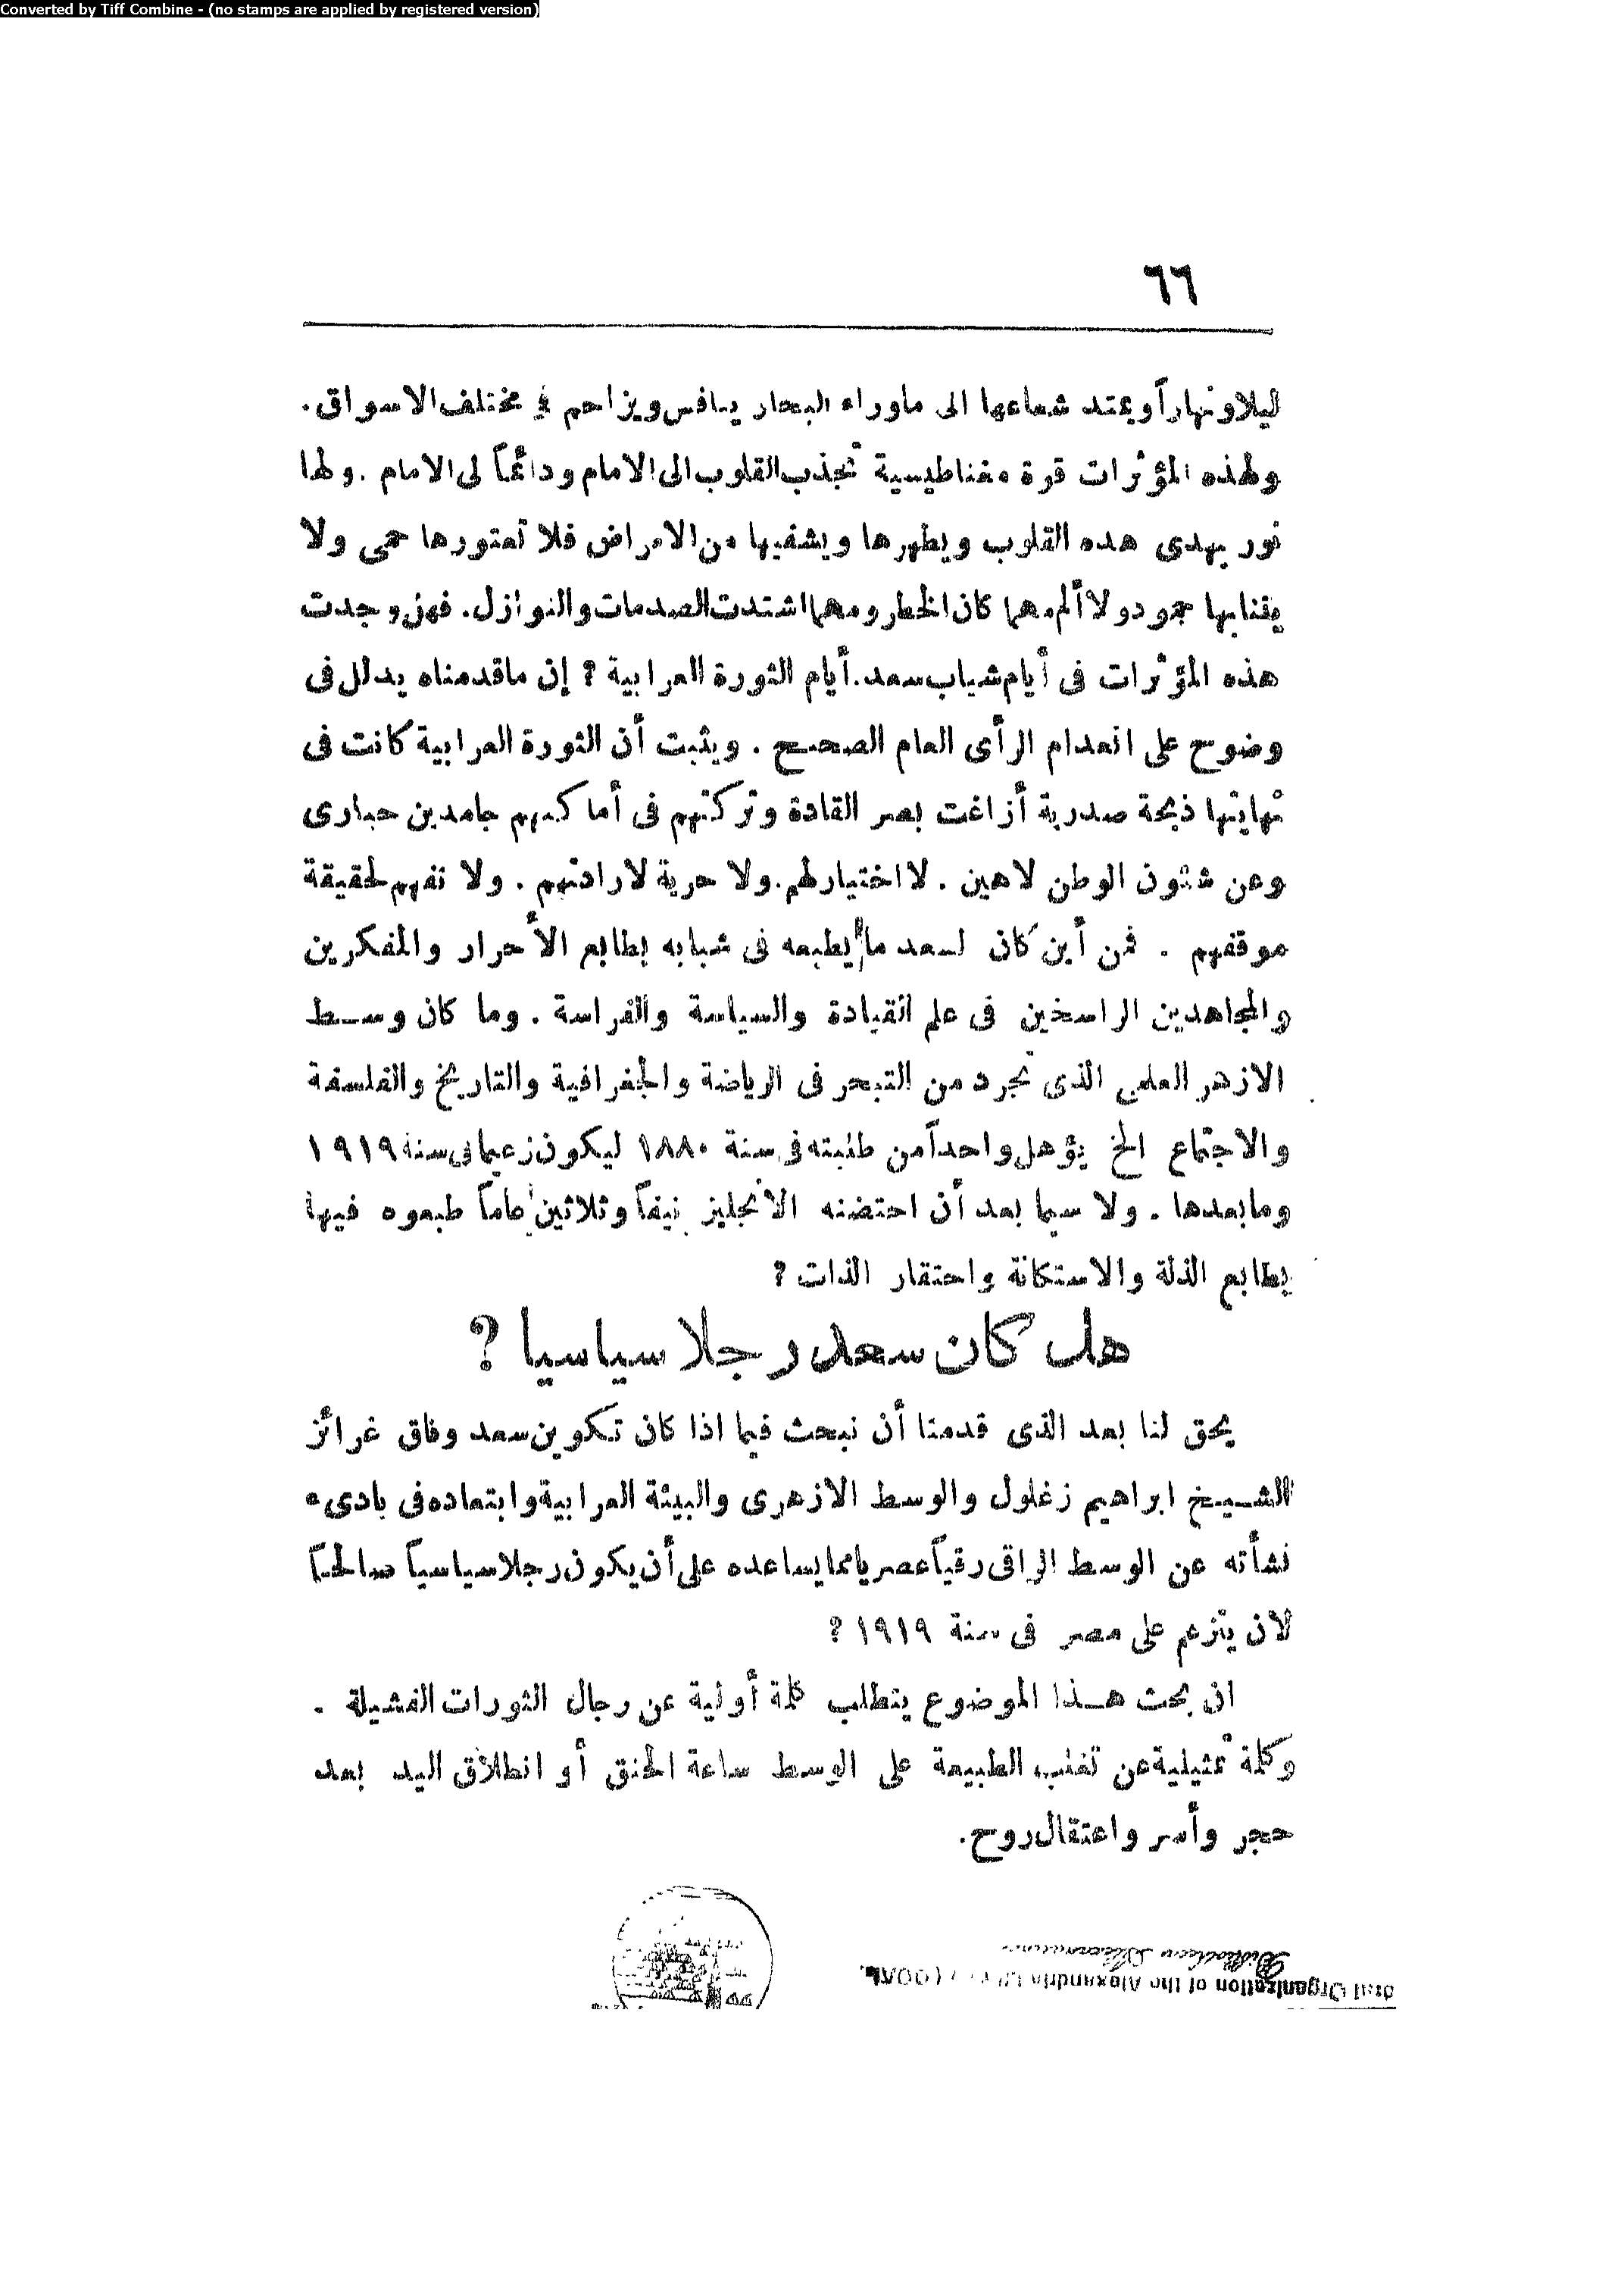 Converted by Tiff Combine - (no stamps are applied by registered version)
٦٦
ليلا ونهاراً ويمتد شعاعها الى ماوراء البحار ينافس ويزاحم في مختلف الاسواق .
ولهذه المؤثرات قوة مغناطيسية تجذب القلوب الى الامام ودائماً الى الامام . ولها
نور يهدى هذه القلوب ويطهرها ويشفيها من الامراض فلا تعتورها حمى ولا
يقنابها جمود ولا ألم مهما كان الخطر ومهما اشتدت الصدمات والنوازل . فهل وجدت
هذه المؤثرات فى أيام شباب سعد . أيام الثورة العرابية ؟ إن ماقدمناه يدلل فى
وضوح على انعدام الرأى العام الصحيح . ويثبت أن الثورة العرابية كانت فى
نهايتها ذبحة صدرية أزاغت بصر القادة وتركتهم فى أماكنهم جامدين حيارى
وعن شئون الوطن لاهين . لا اختيار لهم . ولا حرية لارادتهم . ولا تفهم لحقيقة
موقفهم . فمن أين كان لسعد ما يطبعه فى شبابه بطابع الأحرار والمفكرين
والمجاهدين الراسخين فى علم القيادة والسياسة والفراسة . وما كان وسط
الازهر العلمى الذى تجرد من التبحر فى الرياضة والجغرافية والتاريخ والفلسفة
والاجتماع الخ يؤهل واحداً من طلبته فى سنة ١٨٨٠ ليكون زعيما فى سنة ١٩١٩
ومابعدها . ولا سيما بعد أن احتضنه الانجليز نيفاً وثلاثين عاماً طبعوه فيها
بطابع الذلة والاستكانة واحتقار الذات ؟
هل كان سعد رجلا سياسيا ؟
يحق لنا بعد الذى قدمنا أن نبحث فيما اذا كان تكوين سعد وفاق غرائز
الشيخ ابراهيم زغلول والوسط الازهرى والبيئة العرابية وابتعاده فى بادىء
نشأته عن الوسط الراقى رقياً عصريا مما يساعده على أن يكون رجلا سياسياً صالحاً
لان يتزعم على مصر فى سنة ١٩١٩ ؟
ان بحث هذا الموضوع يتطلب كلمة أولية عن رجال الثورات الفشيلة .
وكلمة تمثيلية عن تغلب الطبيعة على الوسط ساعة الحنق أو انطلاق اليد بعد
حجر وأسر واعتقال روح .
Bibliotheca Alexandrina
Organization of the Alexandria